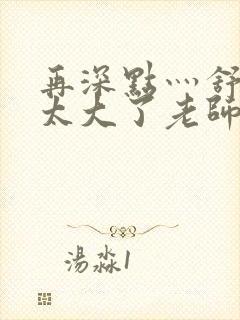 再深點灬舒
太大了老師
湯淼1